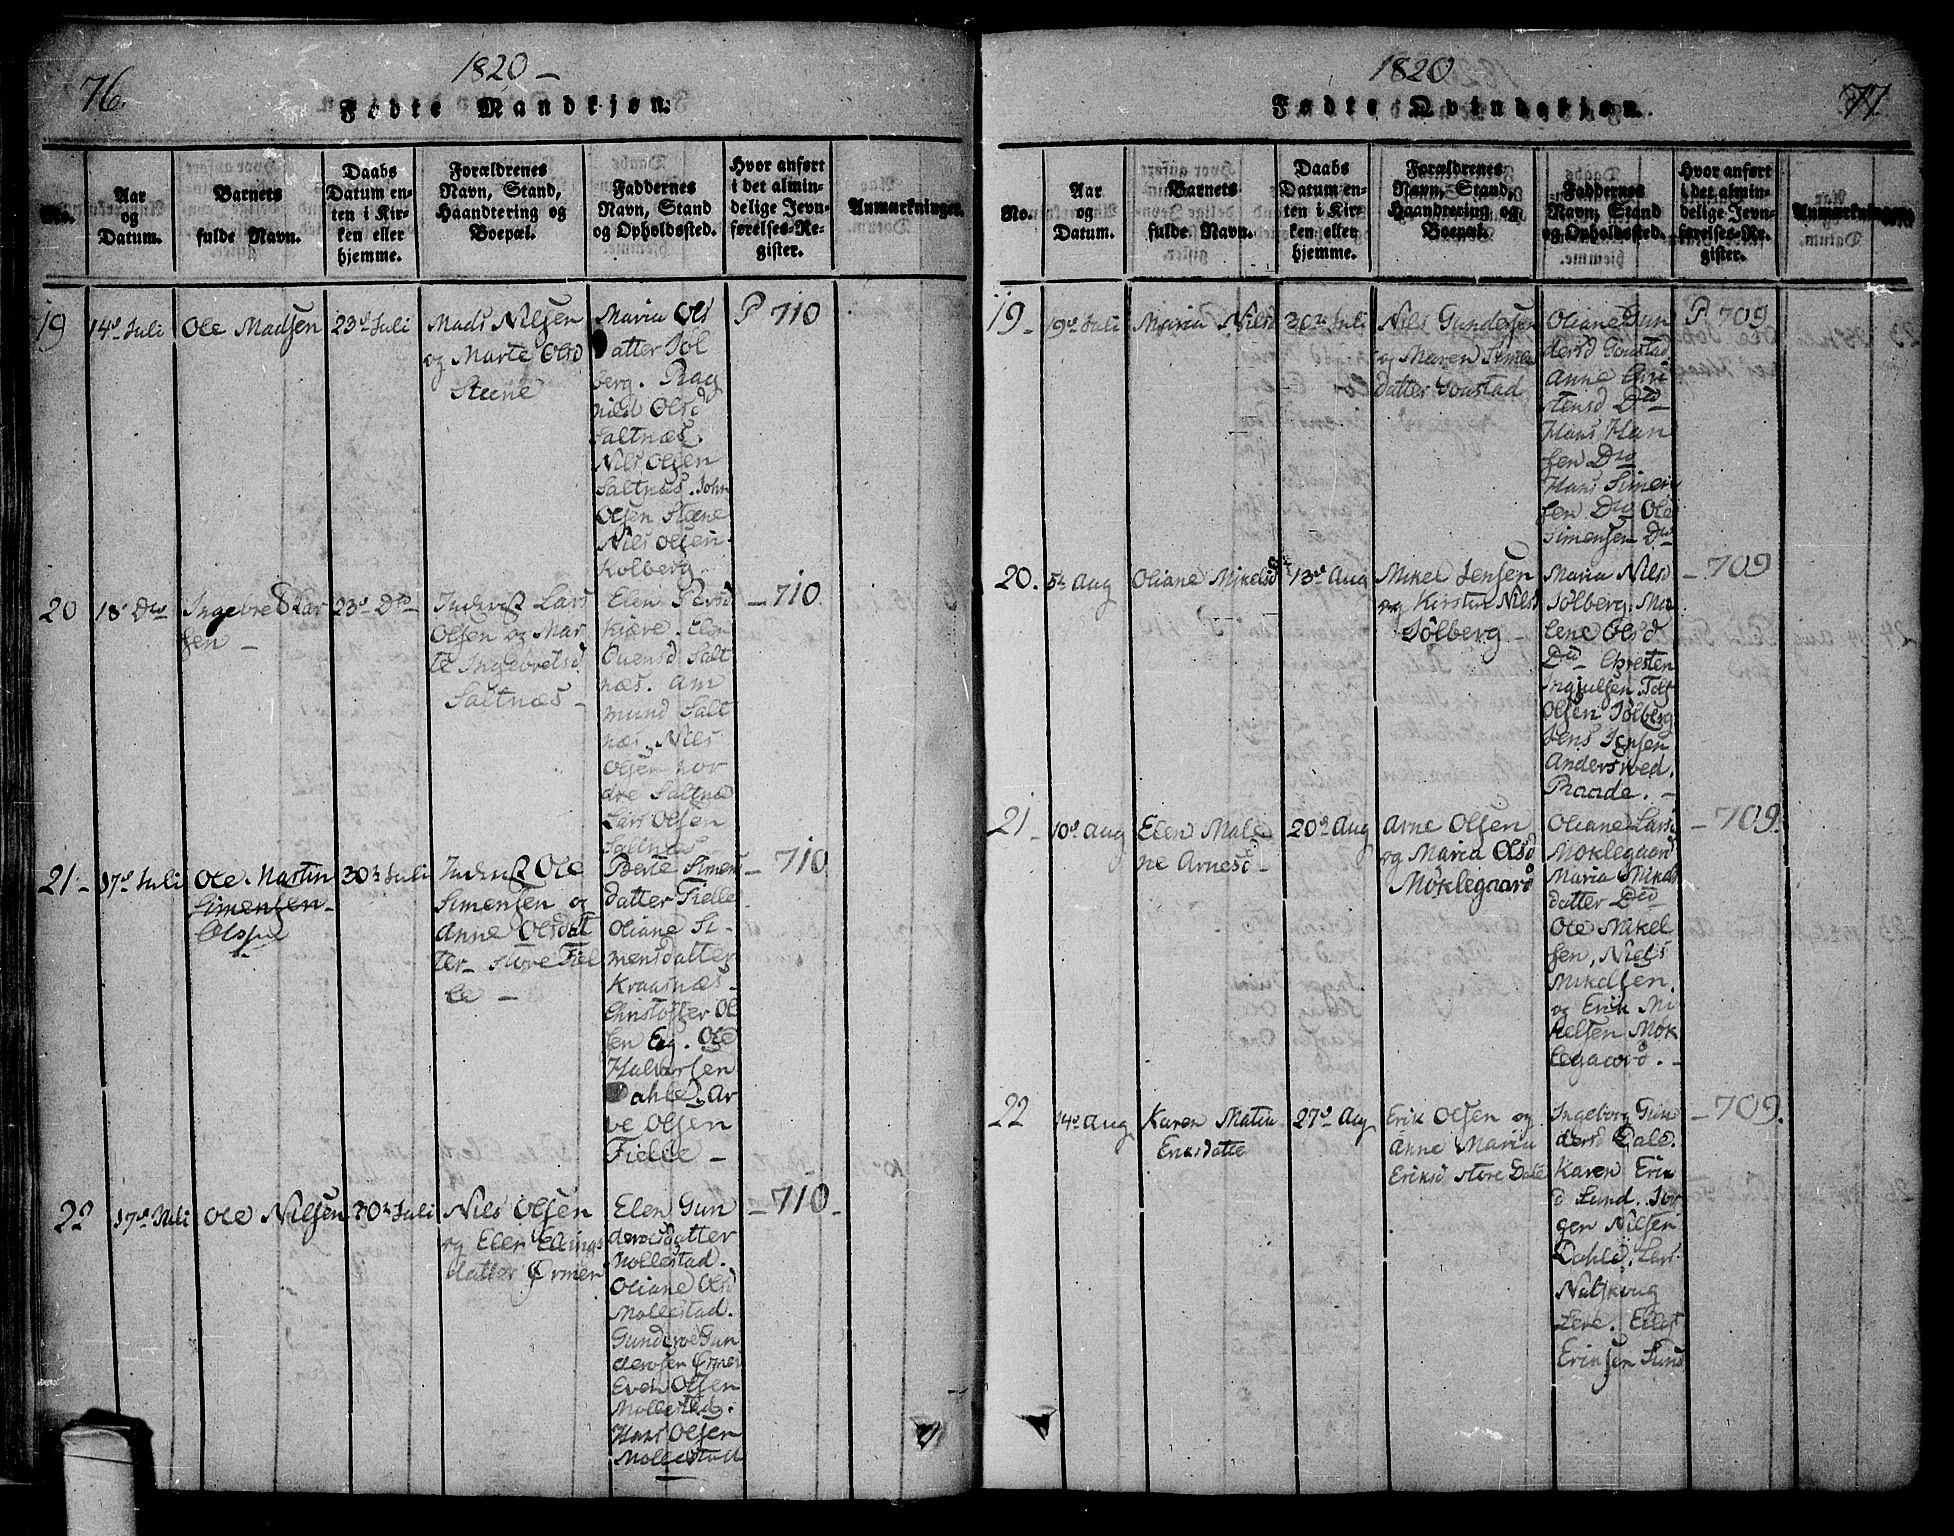 76.
1820 –
Fødte Mandkjøn.
No.
Aar og Datum.
Barnets fulde Navn.
Daabs Datum enten i Kirken eller hjemme.
Forældrenes Navn, Stand, Haandtering og Boepæl.
Faddernes Navn, Stand og Opholdssted.
Hvor anført i det almindelige Jevnførelses-Register.
Anmærkninger.
19
14de Juli
Ole Madsen
23d Juli
Mads Nilsen
og Marte Olsd
Steene
Maria Ols
datter Sol
berg. Rag
nild Olsd
Saltnæs.
Nils Olsen
Saltnæs. John
Olsen Steene
Nils Olsen
Kolberg.
P 710
20
18d Do
Ingebret Lar
sen –
23d Do
Inderst Lars
Olsen og Mar
te Ingebretsd
Saltnæs –
Elen Persd
Kiære.
Ouensd Salt
næs. Am
mund Salt
næs. Nils
Olsen nor
dre Saltnæ
Lars Olsen
Saltnæs
– 710
21 –
17d Juli
Ole Martin
Simensen
Olssen
30d Juli
Inderst Ole
Simensen og
Anne Olsdat
ter – Store Fiel
le –
Berte Simens
datter Fielle
Oliane Si–
mensdatter
Kraasnæs –
Christoffer Ol
sen Eeg. Ole
Halvorsen
Dahle. Ar
ve Olsen
Fielle –
– 710
22
17d Juli
Ole Nilsen
30d Juli
Nils Olsen
og Elen Ellings
datter Ørmen
Elen Gun
dersdatter
Mollestad.
Oliane Olsd
Mollestad.
Gunder Gun
dersen Ørmen
Even Olsen
Mollestad.
Hans Olsen
Mollestad
– 710 –
1820
77.
Fødte Qvindekjøn.
No.
Aar og Datum.
Barnets fulde Navn.
Daabs Datum enten i Kirken eller hjemme.
Forældrenes Navn, Stand, Haandtering og Boepæl.
Faddernes Navn, Stand og Opholdssted.
Hvor anført i det almindelige Jevnførelses-Register.
Anmærkninger.
19 –
19d Juli
Maria Nilsd
30d Juli
Nils Gundersen
og Maren Simens
datter Goustad
Oliane Gun
dersd Goustad
Anne Chri
stensd Do –
Hans Han
sen Do
Hans Simen
sen Do Ole
Simensen Do
P 709
20.
5d Aug
Oliane Mikelsd
13d Aug
Mikel Jensen
og Kirsten Nilsd
Sølberg –
Maria Nilsd
Sølberg. Ma
lene Olsd
Do – Christen
Ingiulsen.
Olsen Sølberg
Jens Jensen
Andersrød.
Raade. –
– 709
21 –
10d Aug
Elen Male
ne Arnesd –
20d Aug
Arne Olsen
og Maria Olsd
Møklegaard
Oliane Larsd
Møklegaard
Maria Mikels
datter Do
Ole Mikel
sen, Niels
Mikelsen,
og Erik Mi
kelsen Møk
legaard. –
– 709.
22
14d Aug
Karen Matia
Ericsdatte
27d Aug
Erik Olsen og
Anne Maria
Eriksd Store Dale
Ingeborg Gun
dersd Dale.
Karen Erik
d Lund. Jør
gen Nilsen
Dahle. Lars
Natskoug
Lere.
Eriksen Lund
– 709.